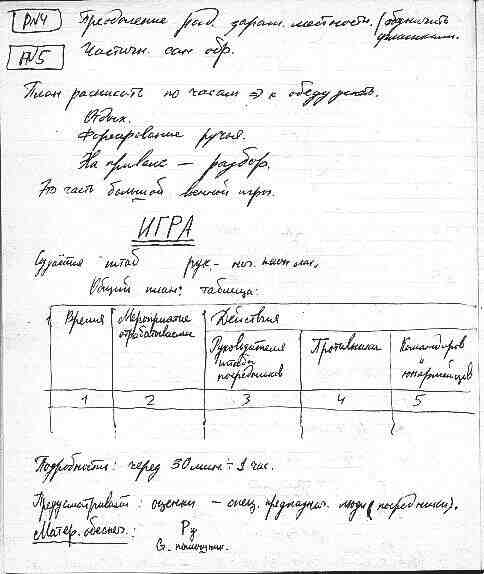 РN4 Преодоление рад. зараж. местности. (обозначить флажками.
РN5 Частичн. сан обр.
План расписать по часам => к обеду успеть.
Отдых.
Форсирование ручья.
На привале – разбор.
Это часть большой военной игры.
ИГРА
Создаётся штаб рук – нач.
Общий план: таблица.
Время Мероприятие отрабатываем Действия
Руководителя штаба посредников Противника Командиров и юнармейцев
1 2 3 4 5
Подробности: через 30 мин ÷ 1 час.
Предусматривать: оценки – спец. люди (посредники).
Матер. обеспеч.: Ру
G. помощник.